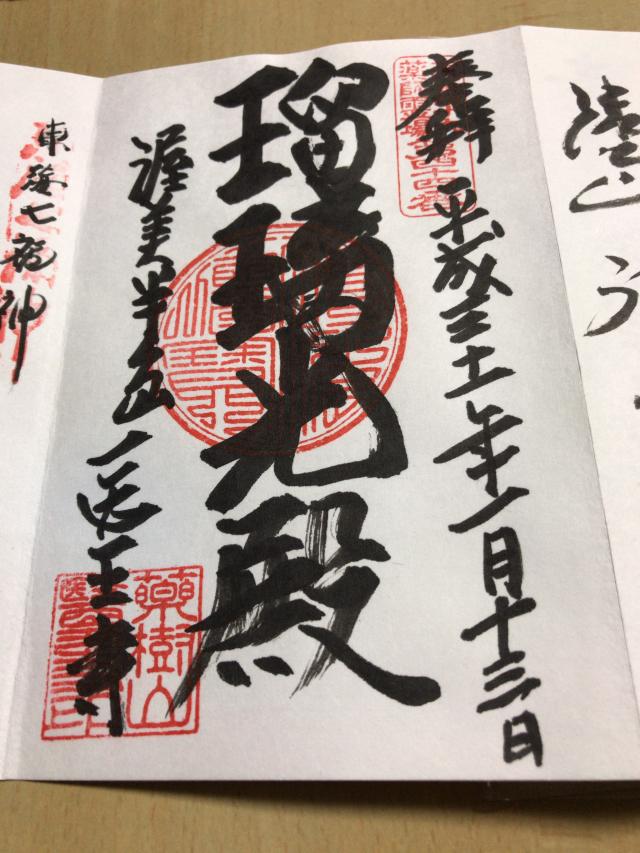 奉拝 平成三十一年一月十三日
瑠璃光殿
渥美半島 医王寺
藥樹山
東海七福神